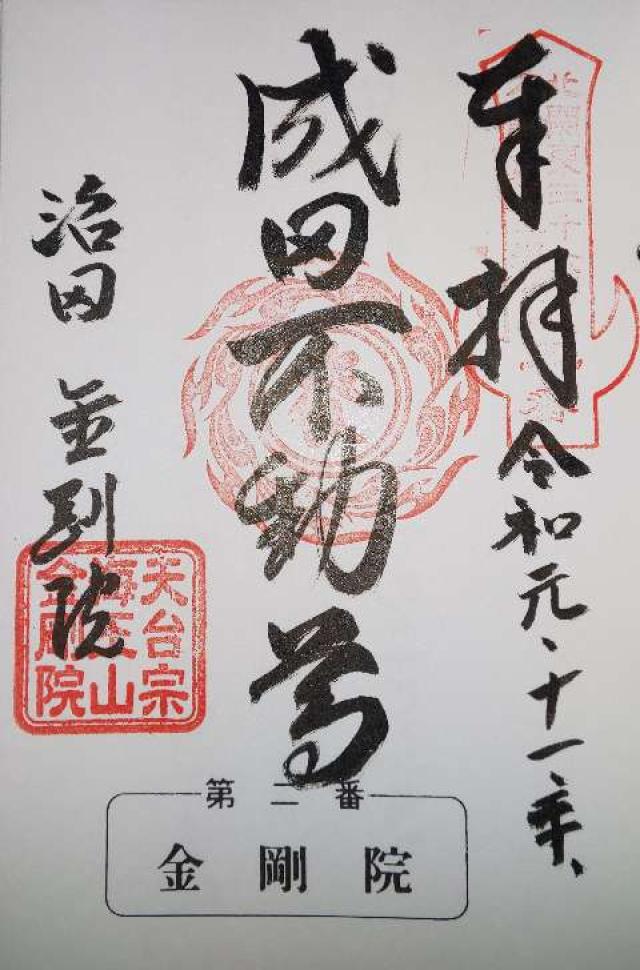 奉拝 令和元、十一、
成田不動尊
沼田 金剛院
北関東三十
天台宗
山
金剛院
第二番
金剛院